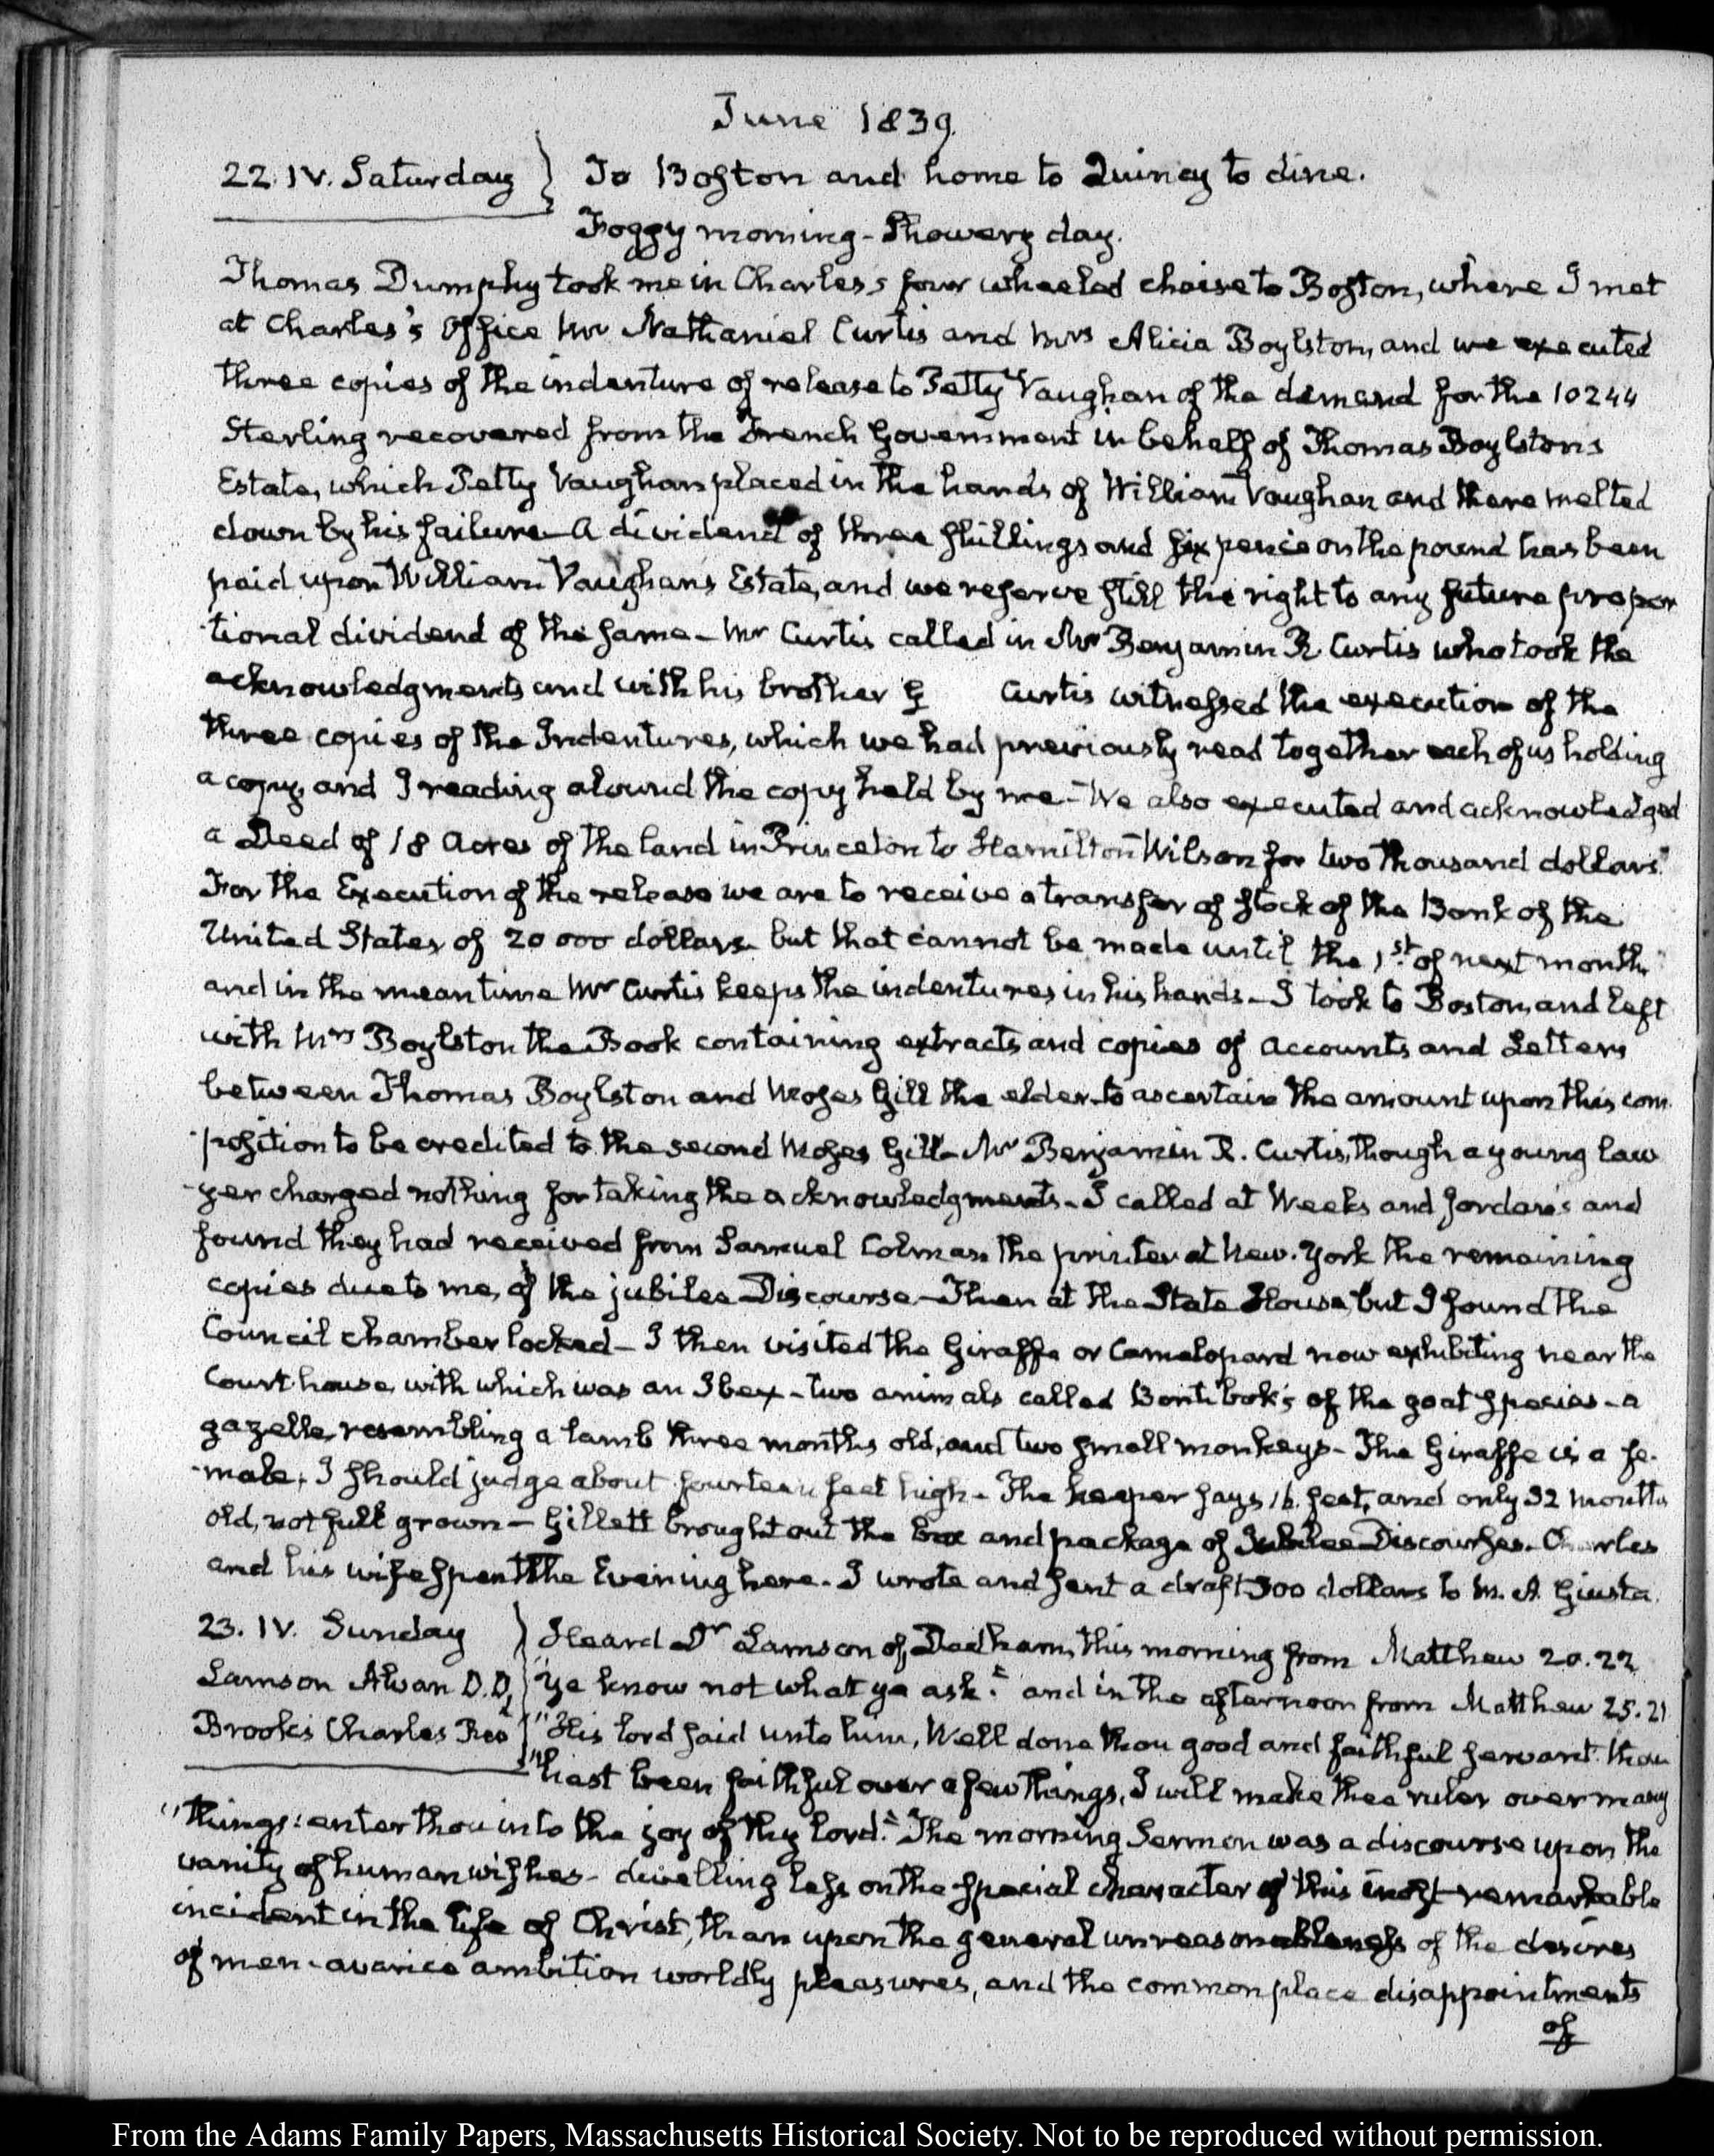 June 1839.
22. IV. Saturday } To Boston and home to Quincy to dine.
Foggy morning - Showery day.
Thomas Dumphy took me in Charles's four wheeled chaise to Boston, where I met
at Charles's Office Mr Nathaniel Curtis and Mrs Alicia Boylston, and we executed
three copies of the indenture of release to Petty Vaughan of the demand for the 10244
Sterling recovered from the French Government in behalf of Thomas Boylstons
Estate, which Petty Vaughan placed in the hands of William Vaughan and there melted
down by his failure - A dividend of three shillings and six pence on the pound has been
paid upon William Vaughans Estate, and we reserve still the right to any future propor
tional dividend of the same - Mr Curtis called in Mr Benjamin R. Curtis who took the
acknowledgments and with his brother G Curtis witnessed the execution of the
three copies of the Indentures, which we had previously read together each of us holding
a copy, and I reading alound the copy held by me - We also executed and acknowledged
a Deed of 18 Acres of the land in Princeton to Hamilton Wilson for two thousand dollars.
For the Execution of the release we are to receive a transfer of stock of the Bank of the
United States of 20 000 dollars but that cannot be made until the 1st. of next month,
and in the mean time Mr Curtis keeps the indentures in his hands - I took to Boston, and left
with Mrs Boylston the Book containing extracts and copies of accounts and Letters
between Thomas Boylston and Moses Gill the elder - to ascertain the amount upon this com
position to be credited to the second Moses Gill - Mr Benjamin R. Curtis, though a young law
-yer charged nothing for taking the acknowledgments - I called at Weeks and Jordan's and
found they had received from Samuel Colman the printer at New-York the remaining
copies due to me, of the jubilee Discourse - Then at the State House, but I found the
Council chamber locked - I then visited the Giraffe or Camelopard now exhibiting near the
Court house, with which was an Ibex - two animals called Bontiboks of the goat species - a
gazelle, resembling a lamb three months old, and two small monkeys - The Giraffe is a fe-
-male, I should judge about fourteen feet high - The keeper says 16 feet, and only 32 months
old, not full grown - Gillett brought out the box and package of Jubilee Discourses. Charles
and his wife spent the Evening here. I wrote and sent a draft 300 dollars to M. A. Giusta.
23. IV. Sunday } Heard Dr Lamson of Dedham, this morning from Matthew 20.22
Lamson Alvan D.D. "Ye know not what ye ask." and in the afternoon from Matthew 25.21
Brooks Charles Revd "His lord said unto him, Well done thou good and faithful servant: thou
"hast been faithful over a few things, I will make thee ruler over many
"things: enter thou into the joy of thy lord." The morning Sermon was a discourse upon the
vanity of human wishes - dwelling less on the special character of this most remarkable
incident in the life of Christ, than upon the general unreasonableness of the desires
of men - avarice ambition worldly pleasures, and the common place disappointments
of
From the Adams Family Papers, Massachusetts Historical Society. Not to be reproduced without permission.